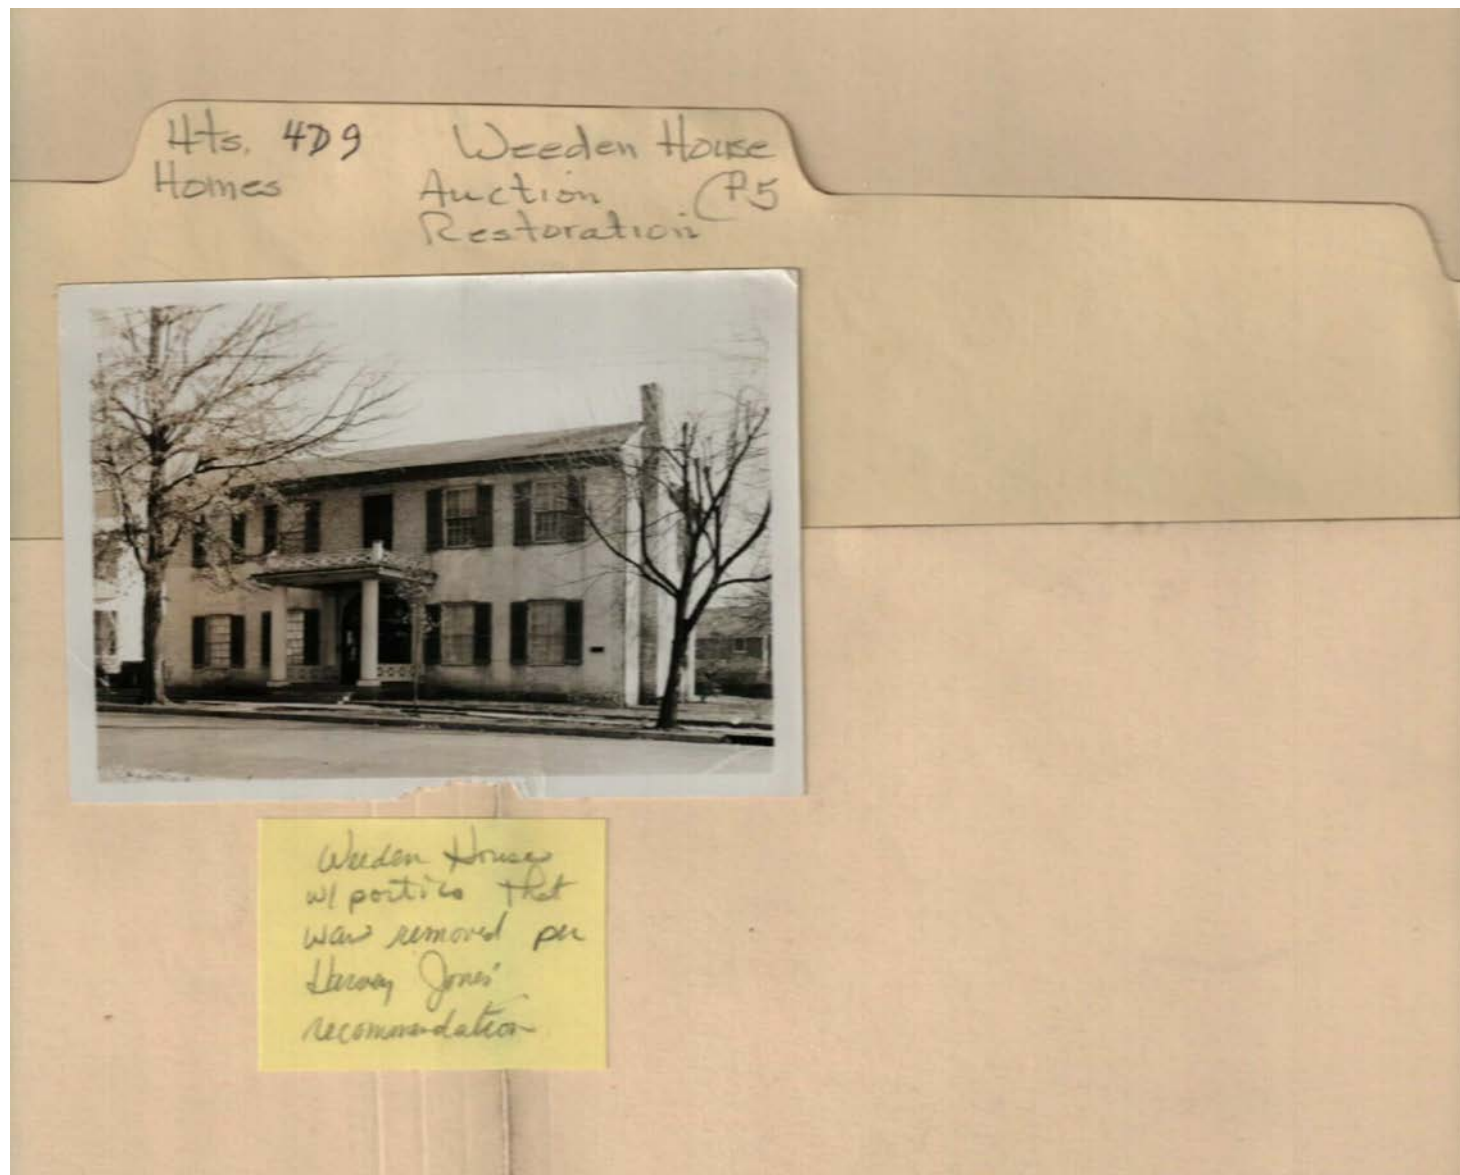 Hts. 4D9 Weeden House
Homes Auction (P5
Restoration
Weeden House
w/ portico that
was removed per
Harvey Jones'
recommendation